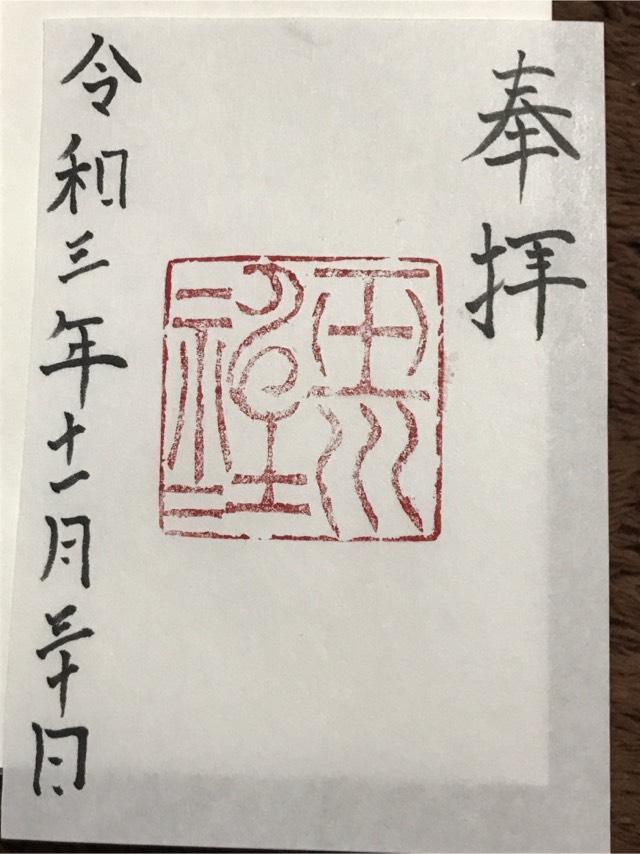 奉拝
令和三年十一月三十日